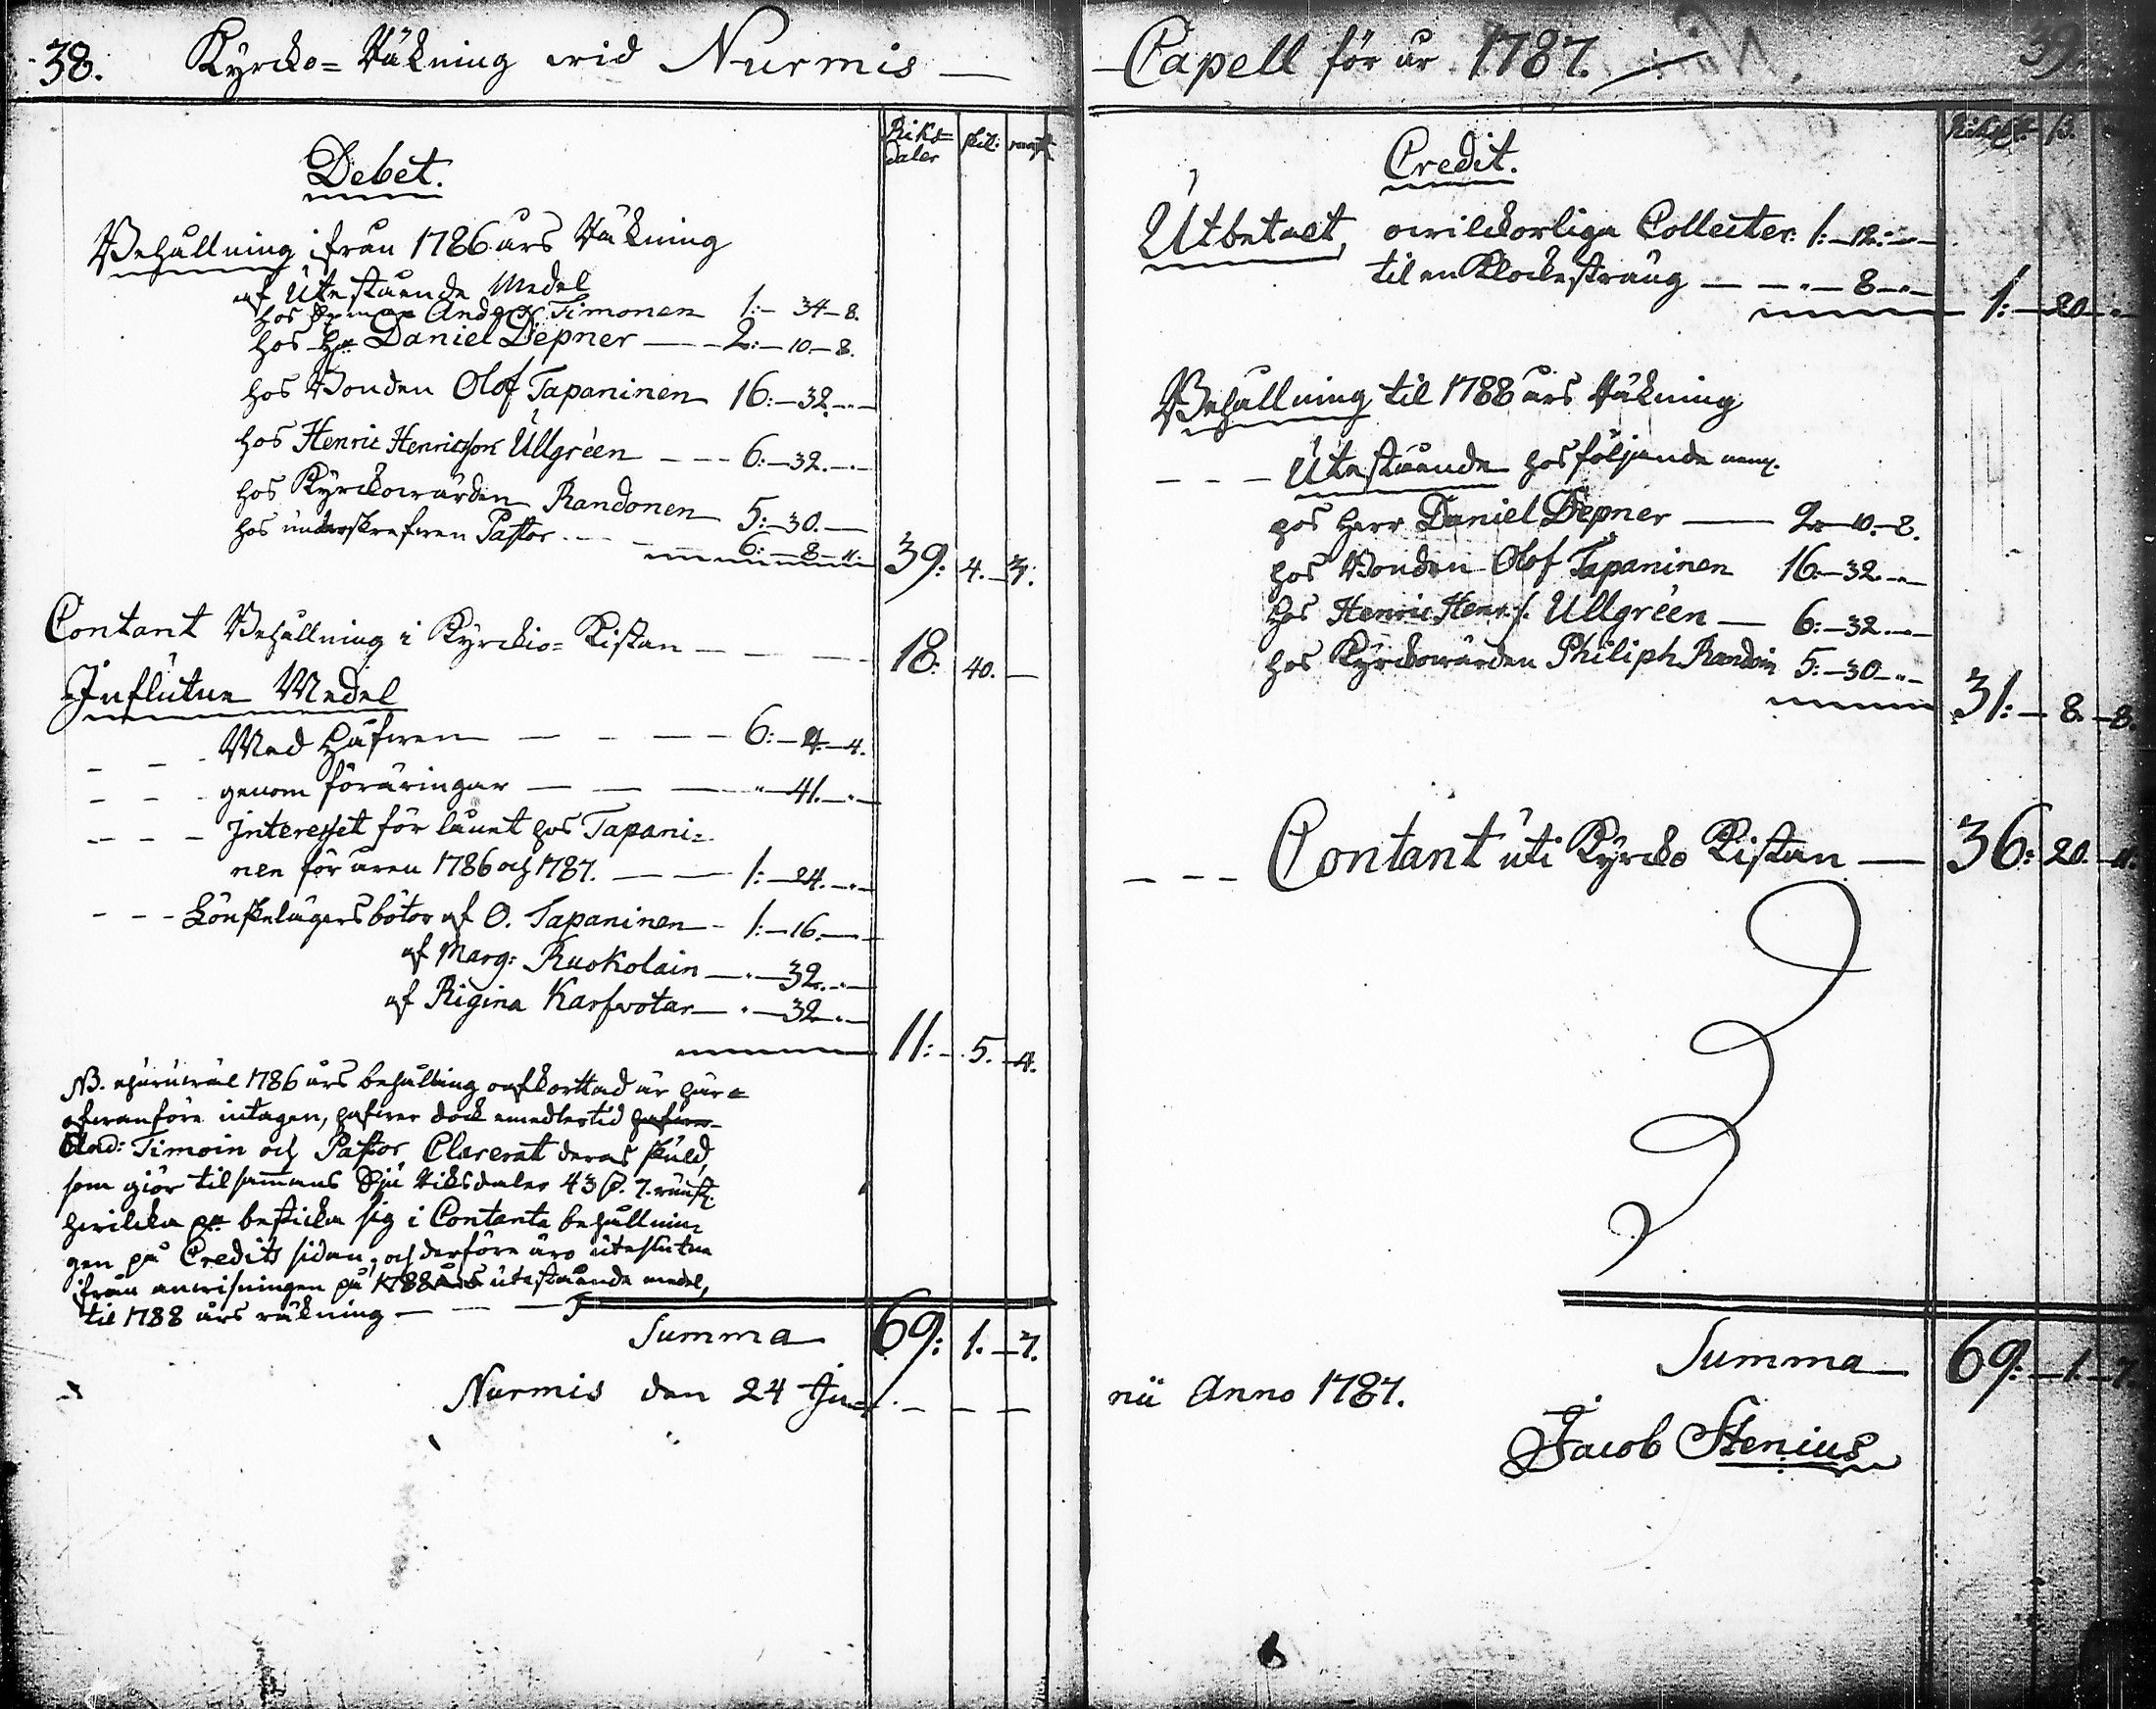 38. Kyrcko=Räkning wid Nurmis
Debet.
Riks=
daler
skil:
runst:
Behållning ifrån 1786 års Räkning
af Utestående Medel
hos Anders Timonen 1:-34-8.
hos Hr Daniel Depner 2:-10-8.
hos Bonden Olof Tapaninen 16:-32.-"-
hos Henric Henricsson Ullgréen 6:-32.-"-
hos Kyrckowärden Randonen 5:-30.-
hos underskrefwen Pastor 6:-8-11.
39: 4.-3.
Contant Behållning i Kyrckio=Kistan 18: 40.-
Influtne Medel
Med Håfwen 6:-4-4.
genom föräringar "-41.-"-
Interesset för lånet hos Tapani=
nen för åren 1786 och 1787. 1:-24.-"-
Lönskelägersböter af O. Tapaninen 1:-16.-"-
af Marg: Ruokolain "-32.-"-
af Rigina Karfwotar "-32-"-
11:-5.-4.
NB. ehuruwäl 1786 års behållning oafkortad är här=
ofwanföre intagen, hafwer dock emedlertid hafwer
And: Timoin och Pastor Clarerat deras skuld,
som giör tilsammans Sju Riksdaler 43 s. 7. runst.
hwilcka på besticka sig i Contanta behållnin=
gen på Credits sidan, och derföre äro uteslutne
ifrån anwisningen på 1788 års utestående medel,
til 1788 års räkning
Summa 69: 1.-7.
Nurmis den 24 Ju=
Capell för år 1787. 39.
Credit.
Riksd: s.
Utbetalt, owilckorliga Collecter: 1:-12:-"-
til en Klockesträng "-8-"-
1:-20-"-
Behållning til 1788 års Räkning
Utestående hos följande neml.
hos Herr Daniel Depner 2-10.-8.
hos Bonden Olof Tapaninen 16-32.-"-
hos Henric Henr:s. Ullgréen 6:-32.-"-
hos Kyrckowärden Philiph Randoin 5:-30-"-
31:-8.-8.
Contant uti Kyrcko Kistan 36: 20.-11.
Summa 69:-1-7
nii Anno 1787.
Jacob Stenius